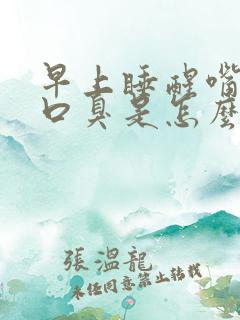 早上睡醒嘴
口臭是怎麼
張溫龍
未经同意禁止转载